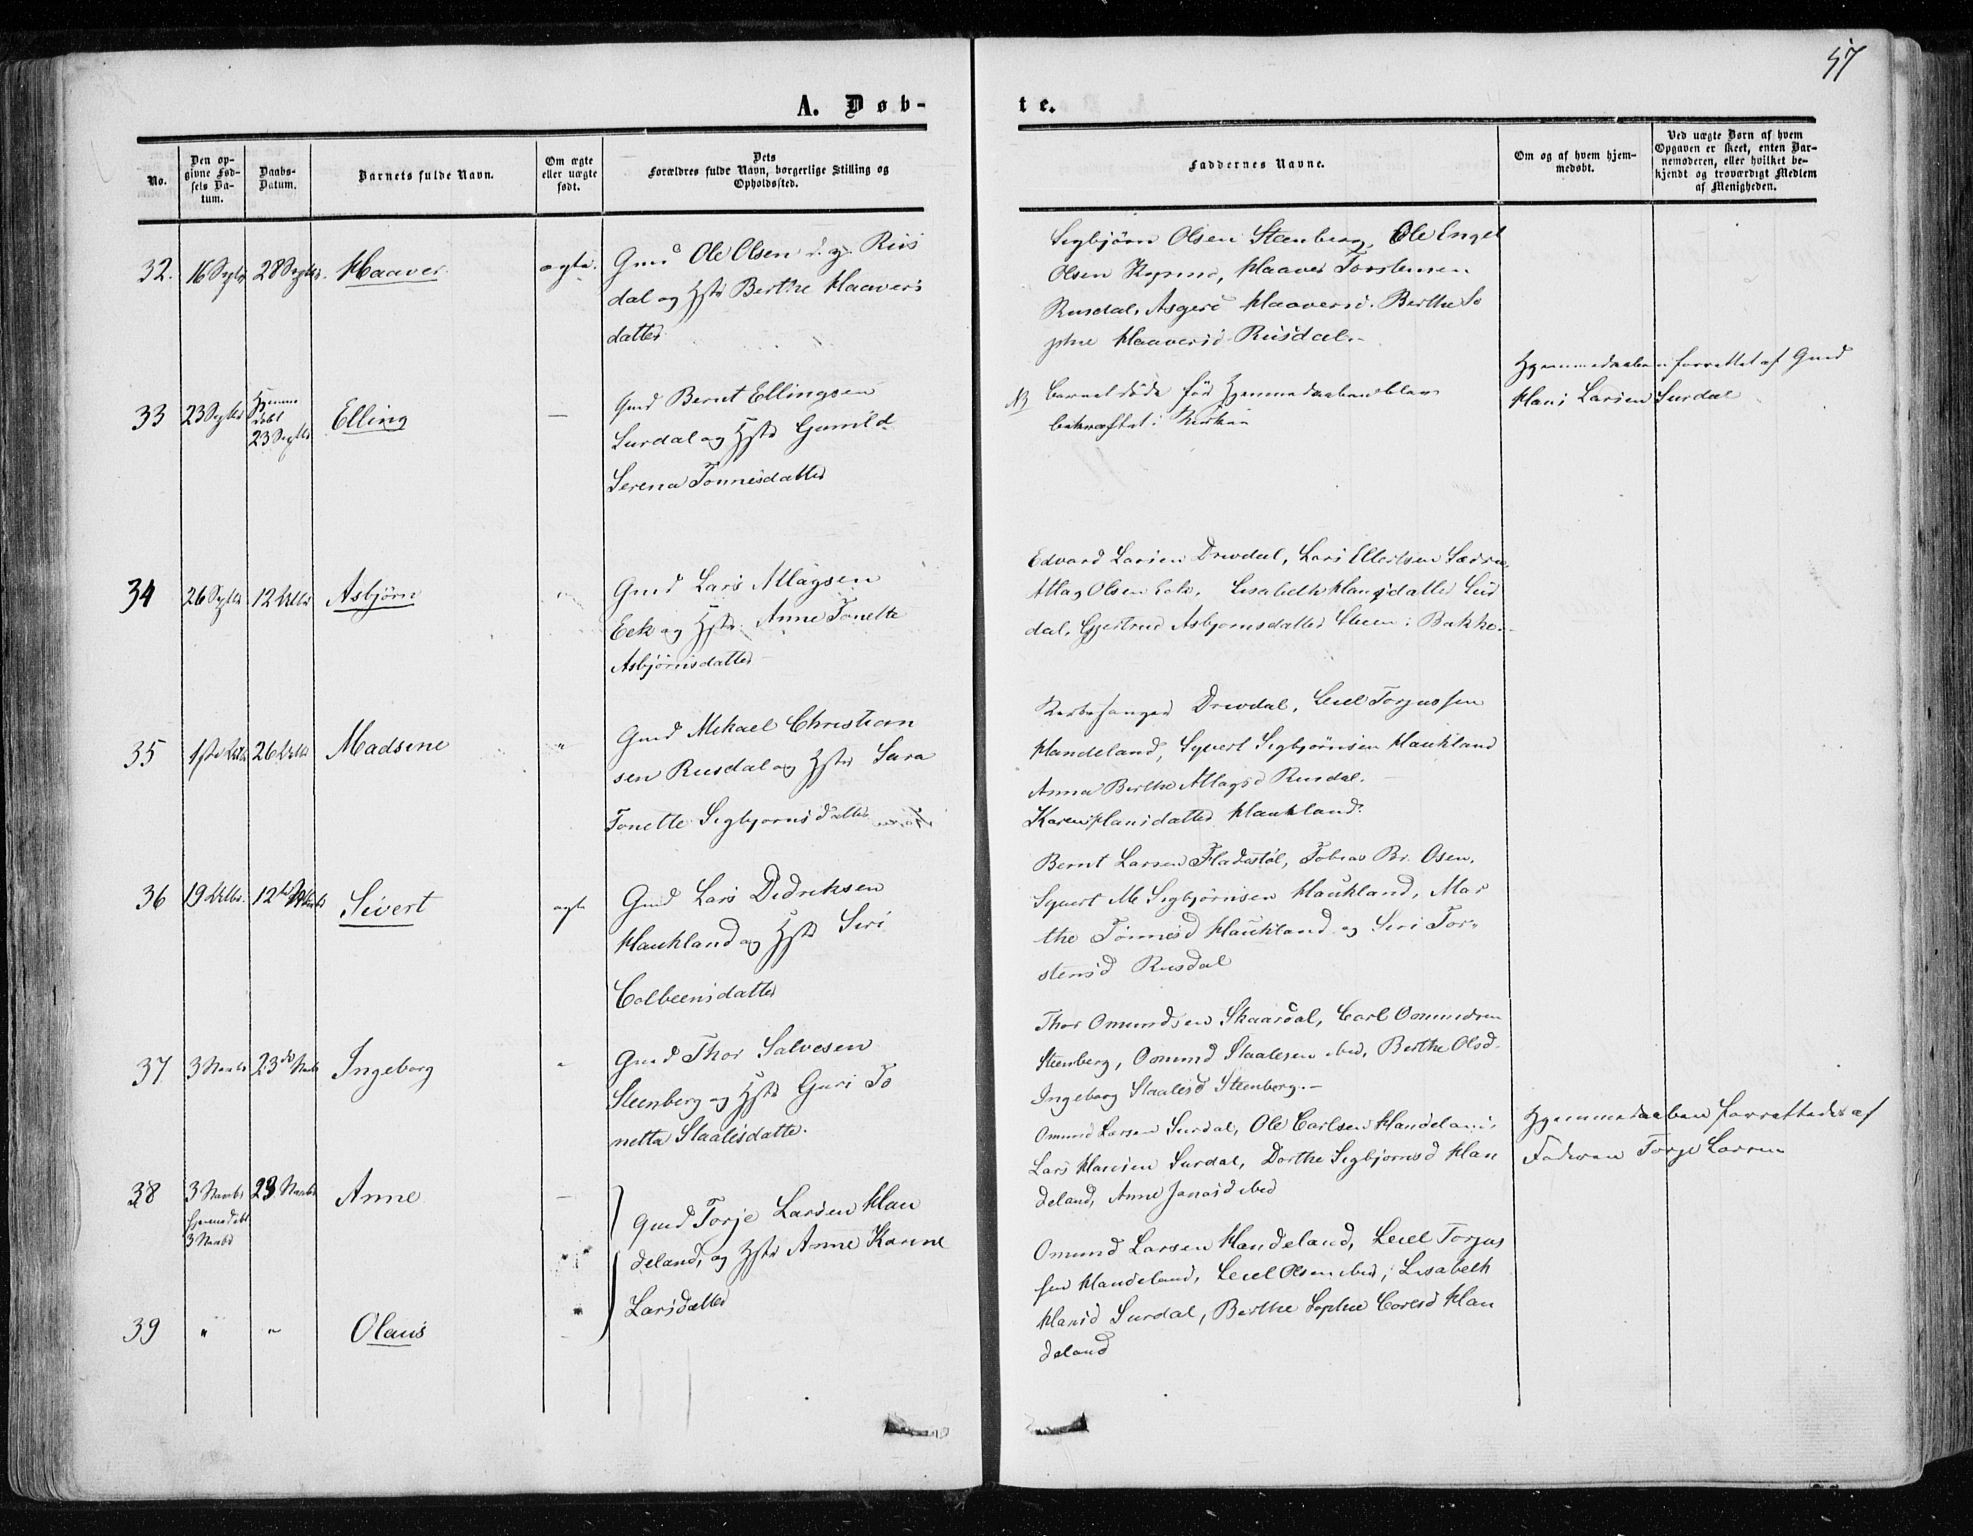 57
A. Døb-
te.
No.
Den op-
givne Fød-
sels Da-
tum.
Daabs-
Datum.
Barnets fulde Navn.
Om ægte
eller uægte
født.
Dets
Forældres fulde Navn, borgerlige Stilling og
Opholdssted.
Faddernes Navne.
Om og af hvem hjem-
medøbt.
Ved uægte Børn af hvem
Opgaven er skeet, enten Bar-
nemoderen, eller hvilket be-
kjendt og troværdigt Medlem
af Menigheden.
32. 16 Septbr 28 Septbr. Haaver ægte.
Gmd Ole Olsen d. y. Rus
dal og Hstr Berthe Haavers
datter
Sigbjørn Olsen Steenberg, Ole Engel
Olsen, Haaver Torstensen
Rusdal, Asgerd Haaversd. Berthe So
phie Haaversd Rusdal.
33 23 Septbr Hjemme
døbt
23 Septbr Elling —
Gmd Bernt Ellingsen
Surdal og Hstr Gunild
Serena Tønnesdatter
NB Barnet døde før Hjemmedaaben blev
bekræftet i Kirken
Hjemmedaaben forrettet af Gmd
Hans Larsen Surdal
34 26 Septbr 12 Octbr Asbjørn "
Gmd Lars Atlagsen
Eek og Hstr. Anne Tonette
Asbjørnsdatter
Edvard Larsen Drivdal, Lars Ellertsen
Atlag Olsen Eek, Lisabeth Hansdatter Sur
dal, Gjertrud Asbjørnsdatter Steen i Bakke.
35 1ste Octbr 26 Octbr Madsine "
Gmd Mikael Christian
sen Rusdal og Hstr Sara
Tonette Sigbjørnsdatter
Kirkesanger Drivdal, Leiel Torjussen
Handeland, Syvert Sigbjørnsen Haukland
Anna Berthe Atlagsd Rusdal.
Karen Hansdatter Haukland.
36 19 Octbr. 12te Novbr Sivert ægte
Gmd Lars Didriksen
Haukland og Hstr Siri
Colbeensdatter
Bernt Larsen Fladestøl, Tobias Br. Osen,
Syvert M Sigbjørnsen Haukland, Mar
the Tønnesd Haukland og Siri Tor-
stensd Rusdal
37 3 Novbr 23de Novbr Ingeborg "
Gmd Thor Salvesen
Steenberg og Hstr Guri To
netta Staalesdatter.
Thor Omundsen Skaardal, Carl Omundsen
Steenberg, Omund Staalesen ibid, Berthe Olsd.
Ingeborg Staalesd Steenberg.-
38 3 Novbr
hjemmedøbt
3 Novbr
23 Novbr Anne —
Gmd Torje Larsen Han
deland, og Hstr Anne Karine
Larsdatter
Omund Larsen Surdal, Ole Carlsen Handeland,
Lars Hansen Surdal, Dorthe Sigbjørnsd Han
deland, Anne Jonasd ibid
Hjemmedaaben forrettedes af
Faderen Torje Larsen
39 " " Olaus —
Omund Larsen Handeland, Leiel Torjus
sen Handeland, Leiel Olsen ibid, Lisabeth
Hansd Surdal, Berthe Sophie Carlsd Han
deland